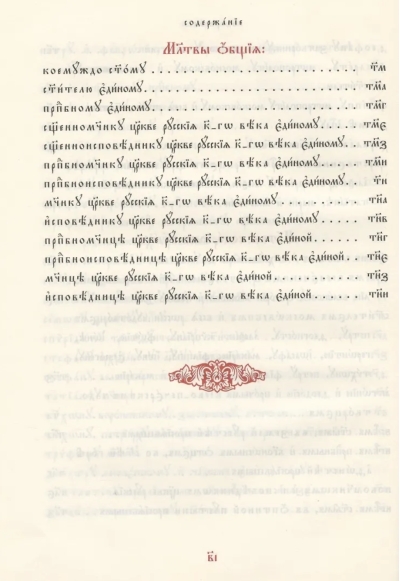 Содержа́нїе
Мл҃твы ѻ҆́бщїѧ:
коемꙋ́ждо ст҃о́мꙋ . . . . . . . . . . . . . . . . . . . . . . . . т҃м
ст҃и́телю є҆ди́номꙋ . . . . . . . . . . . . . . . . . . . . . . . тм҃а
прпⷣбномꙋ є҆ди́номꙋ . . . . . . . . . . . . . . . . . . . . . . тм҃г
сщ҃енномч҃нкꙋ цр҃кве рꙋ́сскїѧ к҃-гѡ вѣ́ка є҆ди́номꙋ . . тм҃є
сщ҃енноисповѣ́дникꙋ цр҃кве рꙋ́сскїѧ к҃-гѡ вѣ́ка є҆ди́номꙋ . тм҃з
прпⷣбномч҃нкꙋ цр҃кве рꙋ́сскїѧ к҃-гѡ вѣ́ка є҆ди́номꙋ . . . . тм҃и
прпⷣбноисповѣ́дникꙋ цр҃кве рꙋ́сскїѧ к҃-гѡ вѣ́ка є҆ди́номꙋ . т҃н
мч҃нкꙋ цр҃кве рꙋ́сскїѧ к҃-гѡ вѣ́ка є҆ди́номꙋ . . . . . . . . тн҃а
и҆сповѣ́дникꙋ цр҃кве рꙋ́сскїѧ к҃-гѡ вѣ́ка є҆ди́номꙋ . . . . . тн҃в
прпⷣбномч҃нцѣ цр҃кве рꙋ́сскїѧ к҃-гѡ вѣ́ка є҆ди́ной . . . . . . тн҃г
прпⷣбноисповѣ́дницѣ цр҃кве рꙋ́сскїѧ к҃-гѡ вѣ́ка є҆ди́ной . . . тн҃є
мч҃нцѣ цр҃кве рꙋ́сскїѧ к҃-гѡ вѣ́ка є҆ди́ной . . . . . . . . . . тн҃з
и҆сповѣ́дницѣ цр҃кве рꙋ́сскїѧ к҃-гѡ вѣ́ка є҆ди́ной . . . . . . . тн҃и
в҃і